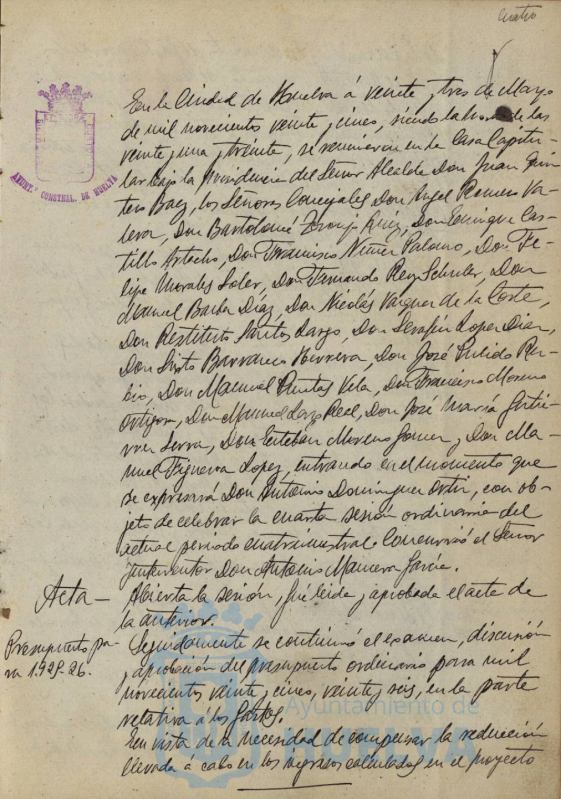 Cuatro
AYUNT. CONSTNAL. DE HUELVA
En la Ciudad de Huelva á veinte y tres de Mayo
de mil novecientos veinte y cinco, siendo la hora de las
veinte y una y treinta, se reunieron en la Casa Capitu-
lar bajo la Presidencia del Señor Alcalde Don Juan Quin-
tero Baez, los Señores Concejales Don Angel Romeu Va-
lera, Don Bartolomé Ruiz, Don Enrique Cas-
tillo Don Francisco Núñez Palomo, Don Fe-
lipe Morales Soler, Don Fernando Rey Don
Manuel Barba Díaz, Don Nicolás Vazquez de la Corte,
Don Restituto Santos Largo, Don Serafín Lopez Diaz,
Don Sixto Barranco Herrera, Don José Pulido Ru-
bio, Don Manuel Vela, Don Francisco Moreno
Ortigosa, Don Manuel Real, Don José María Gutie-
rrez Serra, Don Esteban Moreno y Don Ma-
nuel Figueroa Lopez, entrando en el momento que
se expresará Don Antonio Dominguez Ortiz, con ob-
jeto de celebrar la cuarta sesión ordinaria del
actual periodo cuatrimestral. Concurrió el Señor
Interventor Don Antonio García.
Acta – Abierta la sesión, fué leida y aprobada el acta de
la anterior.
Presupuesto pa-
ra 1.925-26.
Seguidamente se continuó el examen, discusión
y aprobación del presupuesto ordinario para mil
novecientos veinte y cinco, veinte y seis, en la parte
relativa á los Gastos.
En vista de la necesidad de compensar la reducción
llevada á cabo en los ingresos calculados en el proyecto
Ayuntamiento de
HUELVA